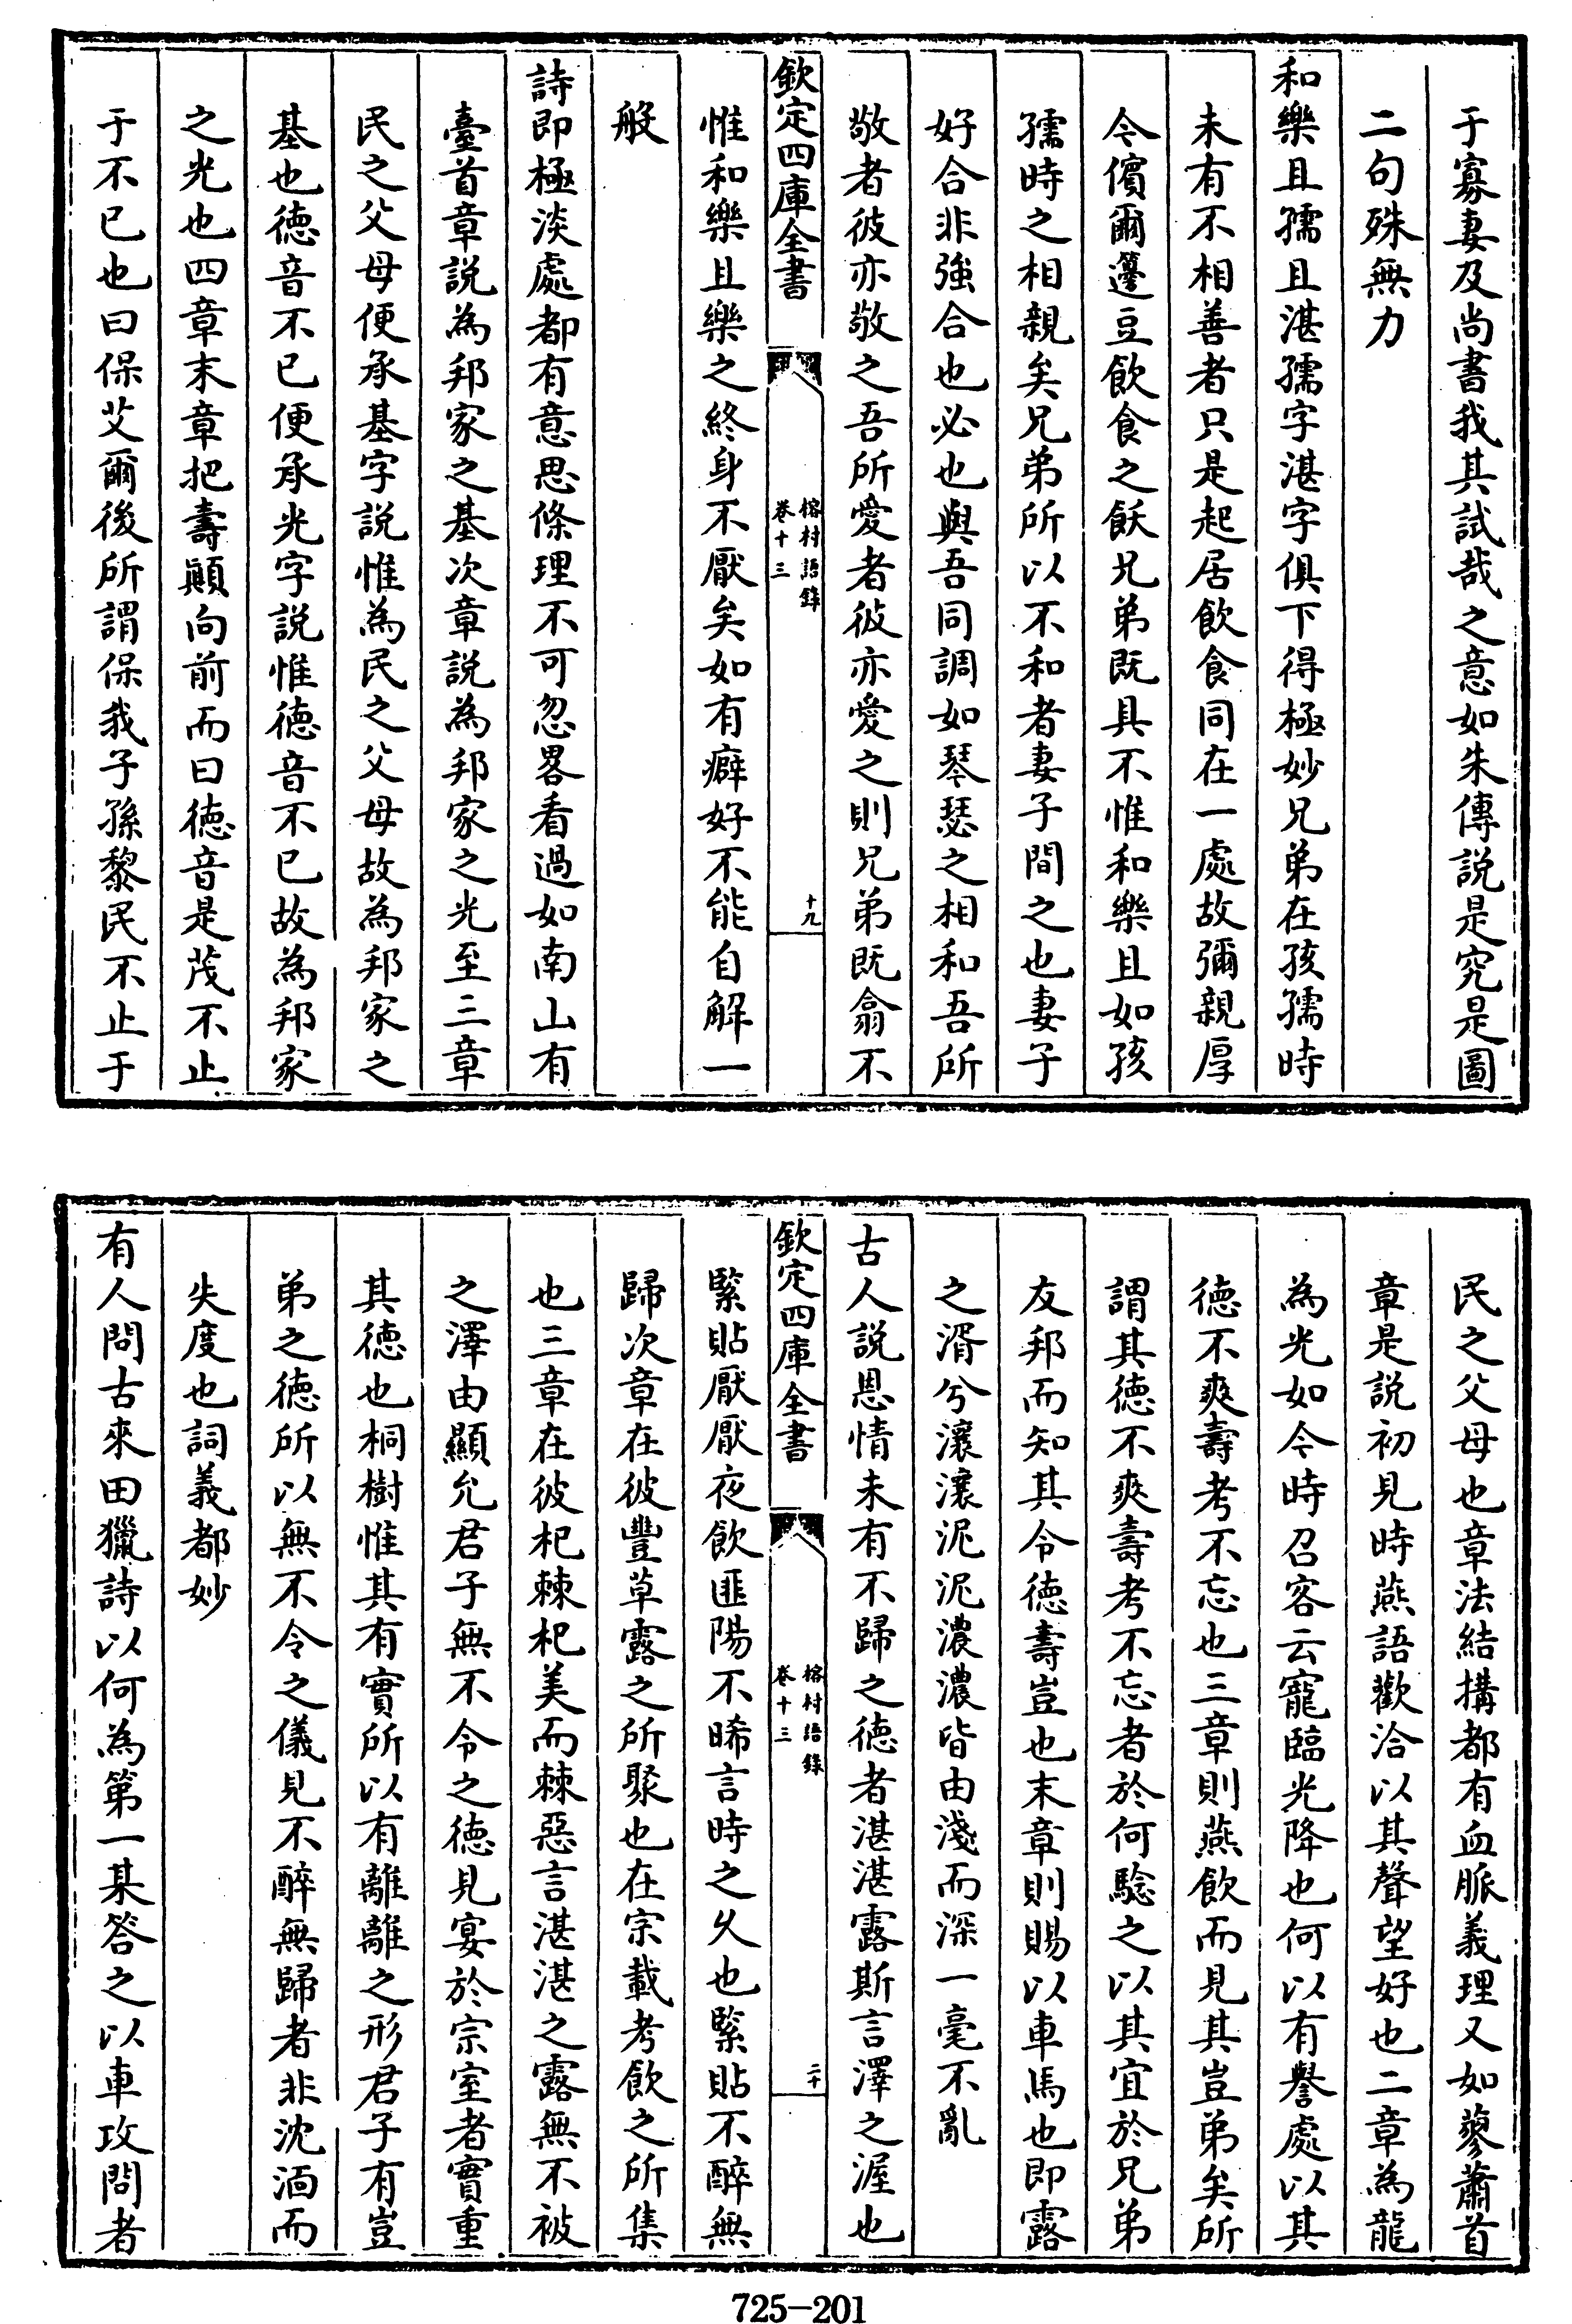 于寡妻及尚書我其試哉之意如朱傳説是究是圖
二句殊無力
和樂且孺且湛孺字湛字俱下得極妙兄弟在孩孺時
未有不相善者只是起居飲食同在一處故彌親厚
今儐爾籩豆飲食之飫兄弟既具不惟和樂且如孩
孺時之相親矣兄弟所以不和者妻子間之也妻子
好合非強合也必也與吾同調如琴瑟之相和吾所
敬者彼亦敬之吾所愛者彼亦愛之則兄弟既翕不
欽定四庫全書
榕村語錄
卷十三
十九
惟和樂且樂之終身不厭矣如有癖好不能自解一
般
詩即極淡處都有意思條理不可忽畧看過如南山有
臺首章説為邦家之基次章説為邦家之光至三章
民之父母便承基字説惟為民之父母故為邦家之
基也德音不已便承光字説惟德音不已故為邦家
之光也四章末章把壽顚向前而曰德音是茂不止
于不已也曰保艾爾後所謂保我子孫黎民不止于
民之父母也章法結搆都有血脈義理又如蓼蕭首
章是説初見時燕語歡洽以其聲望好也二章為龍
為光如今時召客云寵臨光降也何以有譽處以其
德不爽壽考不忘也三章則燕飲而見其豈弟矣所
謂其德不爽壽考不忘者於何騐之以其宜於兄弟
友邦而知其令德壽豈也末章則賜以車馬也即露
之湑兮瀼瀼泥泥濃濃皆由淺而深一毫不亂
古人説恩情未有不歸之德者湛湛露斯言澤之渥也
欽定四庫全書
榕村語錄
卷十三
二十
緊貼厭厭夜飲匪陽不晞言時之乆也緊貼不醉無
歸次章在彼豐草露之所聚也在宗載考飲之所集
也三章在彼杞棘杞美而棘惡言湛湛之露無不被
之澤由顯允君子無不令之德見宴於宗室者實重
其德也桐樹惟其有實所以有離離之形君子有豈
弟之德所以無不令之儀見不醉無歸者非沈湎而
失度也詞義都妙
有人問古來田獵詩以何為第一某答之以車攻問者
725-201